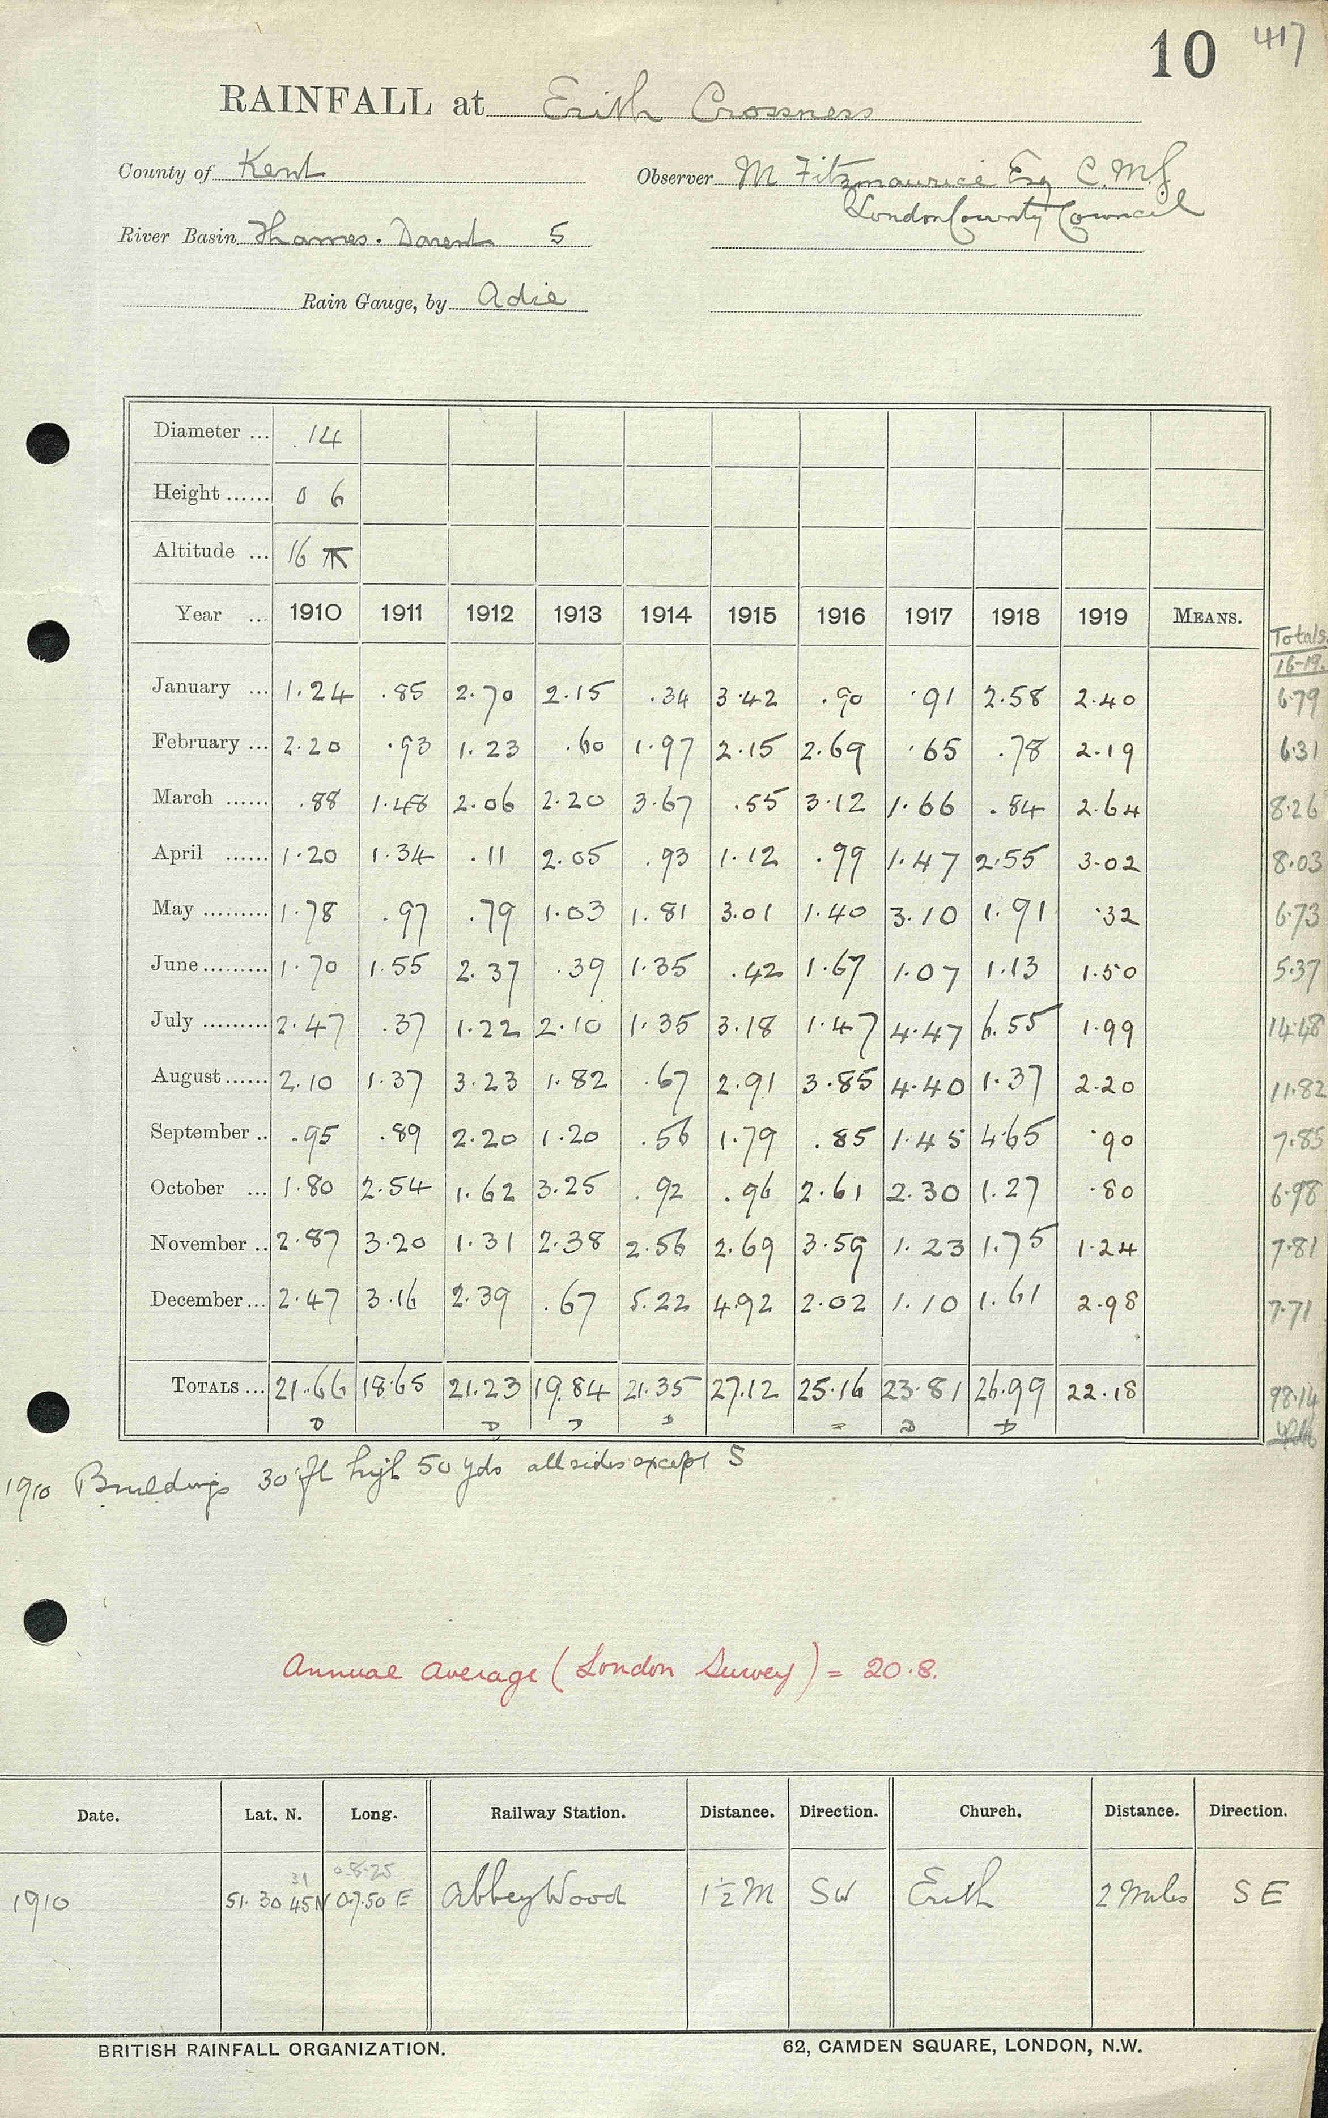 10 417
RAINFALL at Erith Crossness
County of Kent Observer M Fitzmaurice Esq C.M.G.
London County Council
River Basin Thames. Darent 5
Rain Gauge, by Adie
Diameter ... 14
Height ...... 0 6
Altitude ... 16
Year ... 1910 1911 1912 1913 1914 1915 1916 1917 1918 1919 MEANS. Totals
16-19.
January ... 1.24 .85 2.70 2.15 .34 3.42 .90 .91 2.58 2.40 6.79
February ... 2.20 .93 1.23 .60 1.97 2.15 2.69 .65 .78 2.19 6.31
March ...... .88 1.48 2.06 2.20 3.67 .55 3.12 1.66 .84 2.64 8.26
April ...... 1.20 1.34 .11 2.05 .93 1.12 .99 1.47 2.55 3.02 8.03
May ......... 1.78 .97 .79 1.03 1.81 3.01 1.40 3.10 1.91 .32 6.73
June ......... 1.70 1.55 2.37 .39 1.35 .42 1.67 1.07 1.13 1.50 5.37
July ......... 2.47 .37 1.22 2.10 1.35 3.18 1.47 4.47 6.55 1.99 14.48
August ...... 2.10 1.37 3.23 1.82 .67 2.91 3.85 4.40 1.37 2.20 11.82
September .. .95 .89 2.20 1.20 .56 1.79 .85 1.45 4.65 .90 7.85
October ... 1.80 2.54 1.62 3.25 .92 .96 2.61 2.30 1.27 .80 6.98
November .. 2.87 3.20 1.31 2.38 2.56 2.69 3.59 1.23 1.75 1.24 7.81
December ... 2.47 3.16 2.39 .67 5.22 4.92 2.02 1.10 1.61 2.98 7.71
TOTALS ... 21.66 18.65 21.23 19.84 21.35 27.12 25.16 23.81 26.99 22.18 98.14
1910 Buildings 30 ft high 50 yds all sides except S
Annual average (London Survey) = 20.8.
Date. Lat. N. Long. Railway Station. Distance. Direction. Church. Distance. Direction.
31 0.8.25
1910 51. 30 45N 0.7.50 E Abbey Wood 1½ M SW Erith 2 Miles S E
BRITISH RAINFALL ORGANIZATION. 62, CAMDEN SQUARE, LONDON, N.W.